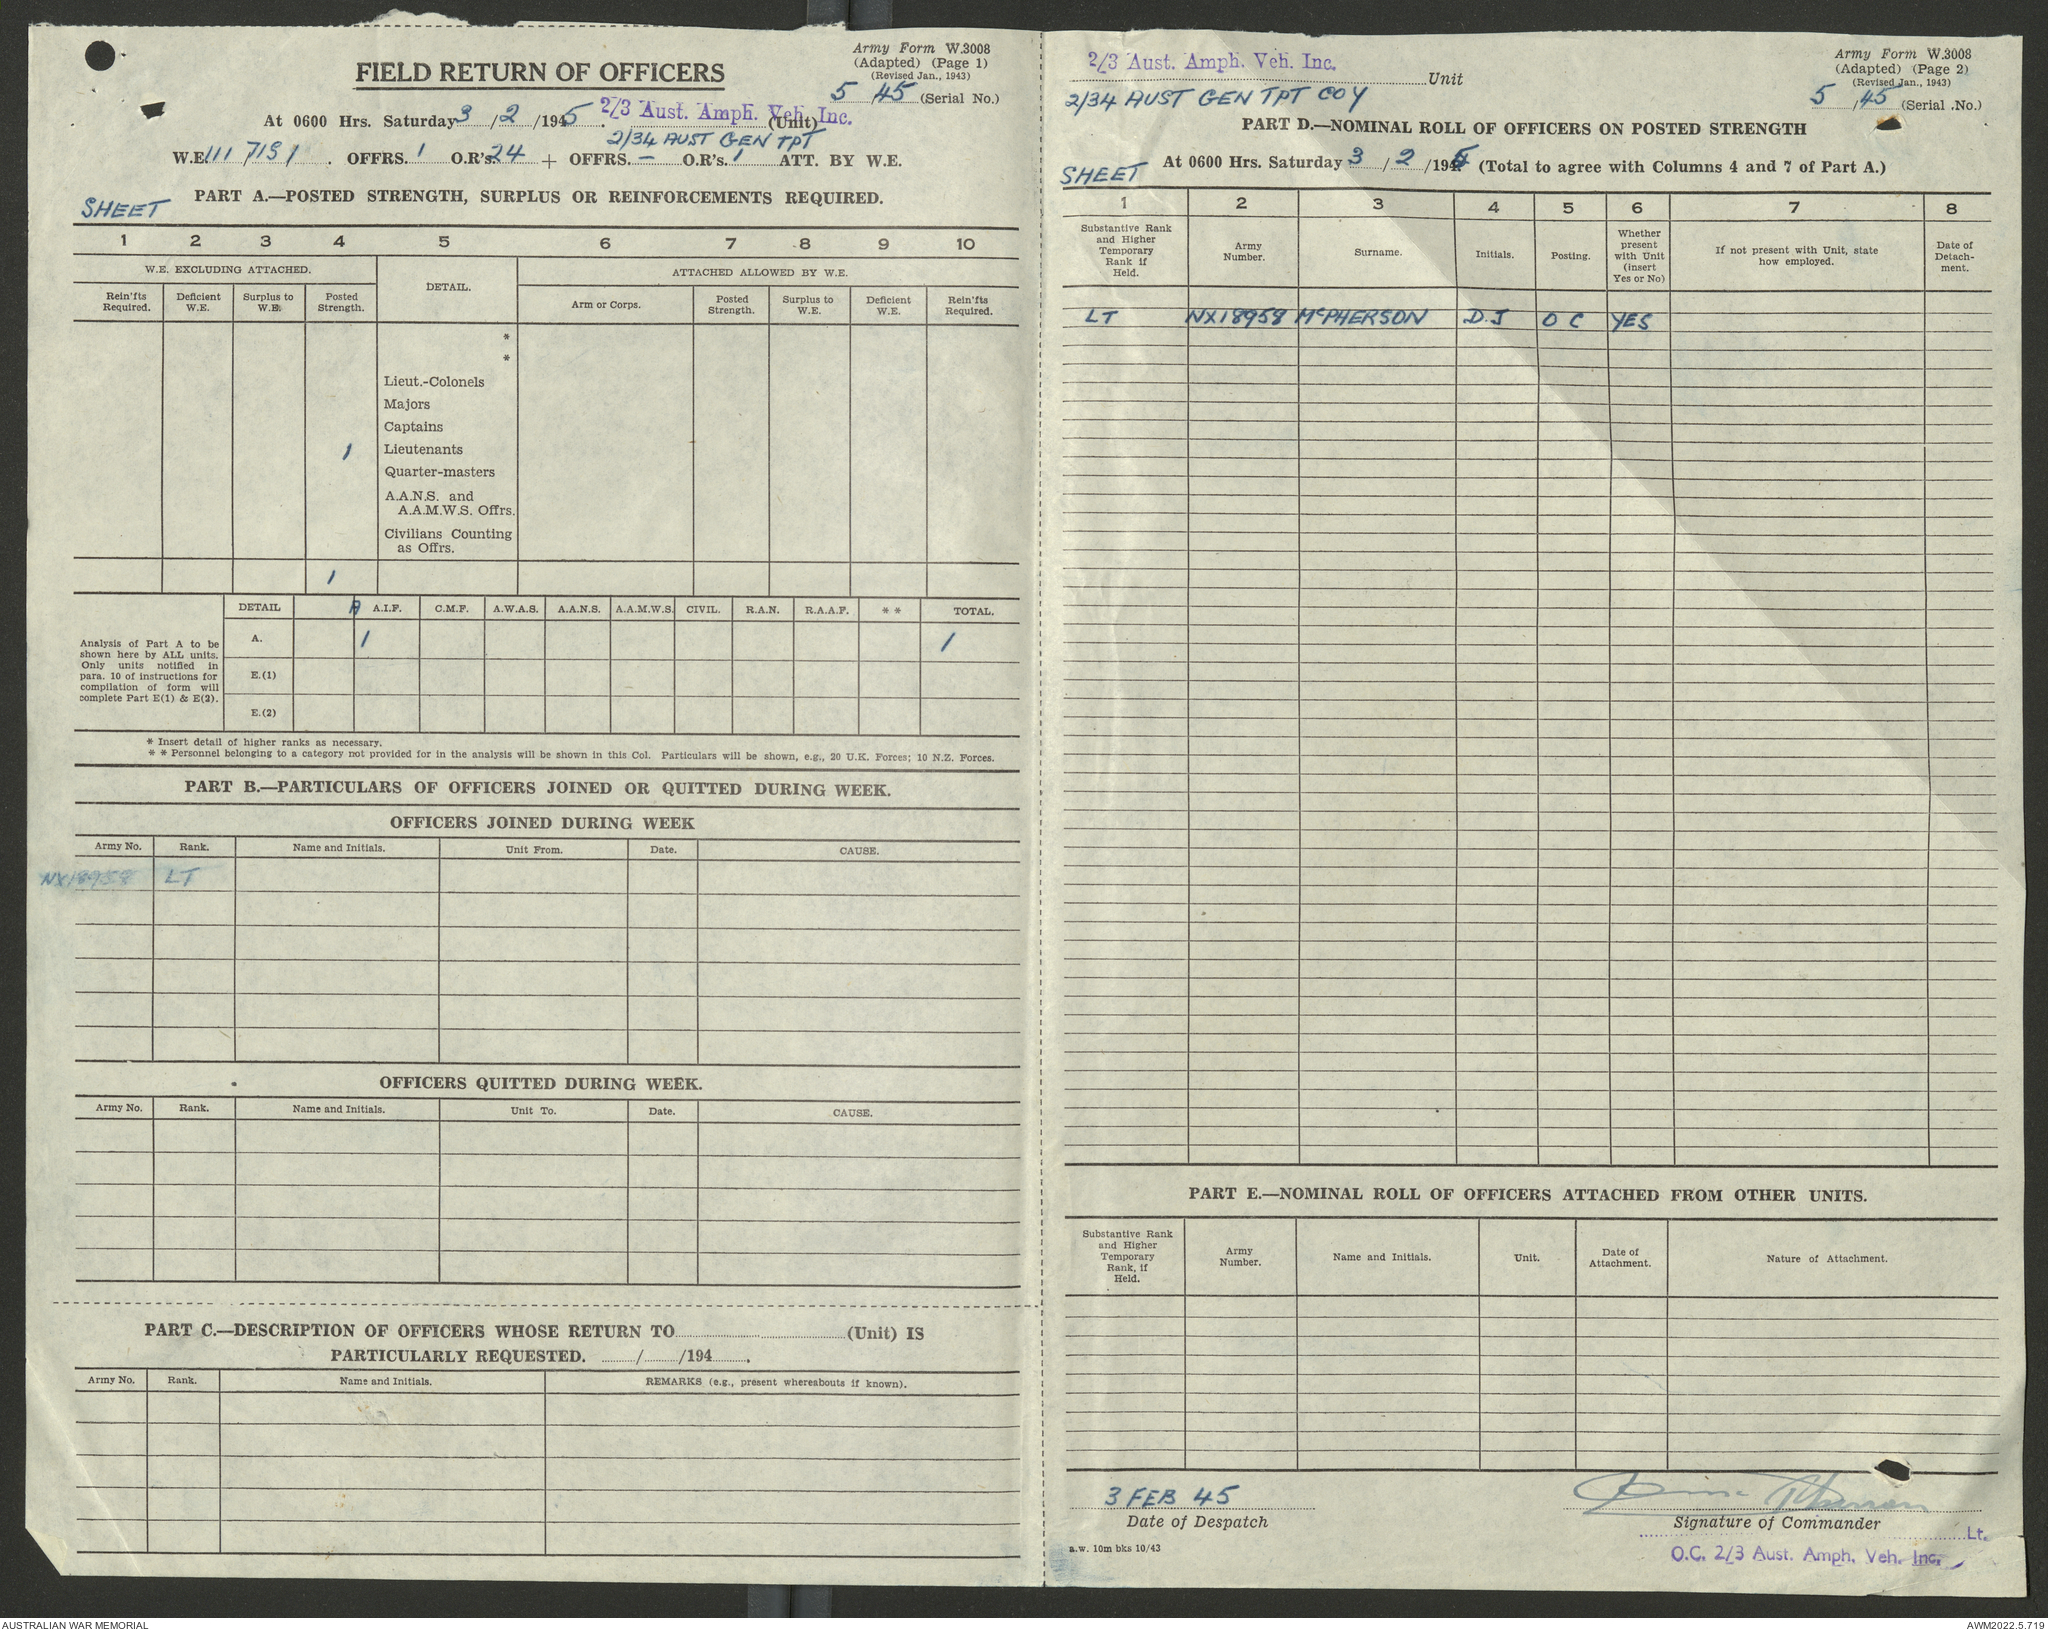 Army Form W.3008
(Adapted) (Page 1)
(Revised Jan., 1943)
5 45 (Serial No.)
FIELD RETURN OF OFFICERS
At 0600 Hrs. Saturday 3/2/1945. 2/3 Aust. Amph. Veh. Inc. (Unit)
2/34 AUST GEN TPT
W.E. OFFRS. 1 O.R's. 24 + OFFRS. – O.R's. 1 ATT. BY W.E.
SHEET
PART A.—POSTED STRENGTH, SURPLUS OR REINFORCEMENTS REQUIRED.
1 2 3 4 5 6 7 8 9 10
W.E. EXCLUDING ATTACHED. DETAIL. ATTACHED ALLOWED BY W.E.
Rein'fts Required. Deficient W.E. Surplus to W.E. Posted Strength. Arm or Corps. Posted Strength. Surplus to W.E. Deficient W.E. Rein'fts Required.
*
*
Lieut.-Colonels
Majors
Captains
1 Lieutenants
Quarter-masters
A.A.N.S. and
A.A.M.W.S. Offrs.
Civilians Counting
as Offrs.
1
DETAIL A.I.F. C.M.F. A.W.A.S. A.A.N.S. A.A.M.W.S. CIVIL. R.A.N. R.A.A.F. * * TOTAL.
A. 1 1
E.(1)
E.(2)
Analysis of Part A to be
shown here by ALL units.
Only units notified in
para. 10 of instructions for
compilation of form will
complete Part E(1) & E(2).
* Insert detail of higher ranks as necessary.
* * Personnel belonging to a category not provided for in the analysis will be shown in this Col. Particulars will be shown, e.g., 20 U.K. Forces; 10 N.Z. Forces.
PART B.—PARTICULARS OF OFFICERS JOINED OR QUITTED DURING WEEK.
OFFICERS JOINED DURING WEEK
Army No. Rank. Name and Initials. Unit From. Date. CAUSE.
NX18958 LT
OFFICERS QUITTED DURING WEEK.
Army No. Rank. Name and Initials. Unit To. Date. CAUSE.
PART C.—DESCRIPTION OF OFFICERS WHOSE RETURN TO (Unit) IS
PARTICULARLY REQUESTED. / /194 .
Army No. Rank. Name and Initials. REMARKS (e.g., present whereabouts if known).
2/3 Aust. Amph. Veh. Inc. Unit
2/34 AUST GEN TPT COY
Army Form W.3008
(Adapted) (Page 2)
(Revised Jan., 1943)
5/45 (Serial No.)
PART D.—NOMINAL ROLL OF OFFICERS ON POSTED STRENGTH
SHEET At 0600 Hrs. Saturday 3/2/1945 (Total to agree with Columns 4 and 7 of Part A.)
1 2 3 4 5 6 7 8
Substantive Rank and Higher Temporary Rank if Held. Army Number. Surname. Initials. Posting. Whether present with Unit (insert Yes or No) If not present with Unit, state how employed. Date of Detach-ment.
LT NX18958 McPHERSON D.J O C YES
PART E.—NOMINAL ROLL OF OFFICERS ATTACHED FROM OTHER UNITS.
Substantive Rank and Higher Temporary Rank, if Held. Army Number. Name and Initials. Unit. Date of Attachment. Nature of Attachment.
3 FEB 45
Date of Despatch
Signature of Commander
Lt.
O.C. 2/3 Aust. Amph. Veh. Inc.
a.w. 10m bks 10/43
AUSTRALIAN WAR MEMORIAL
AWM2022.5.719